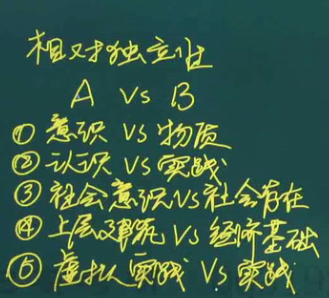 相对独立性
A VS B
① 意识 VS 物质
② 认识 VS 实践
③ 社会意识VS社会存在
④ 上层建筑 VS 经济基础
⑤ 虚拟实践 VS 实践